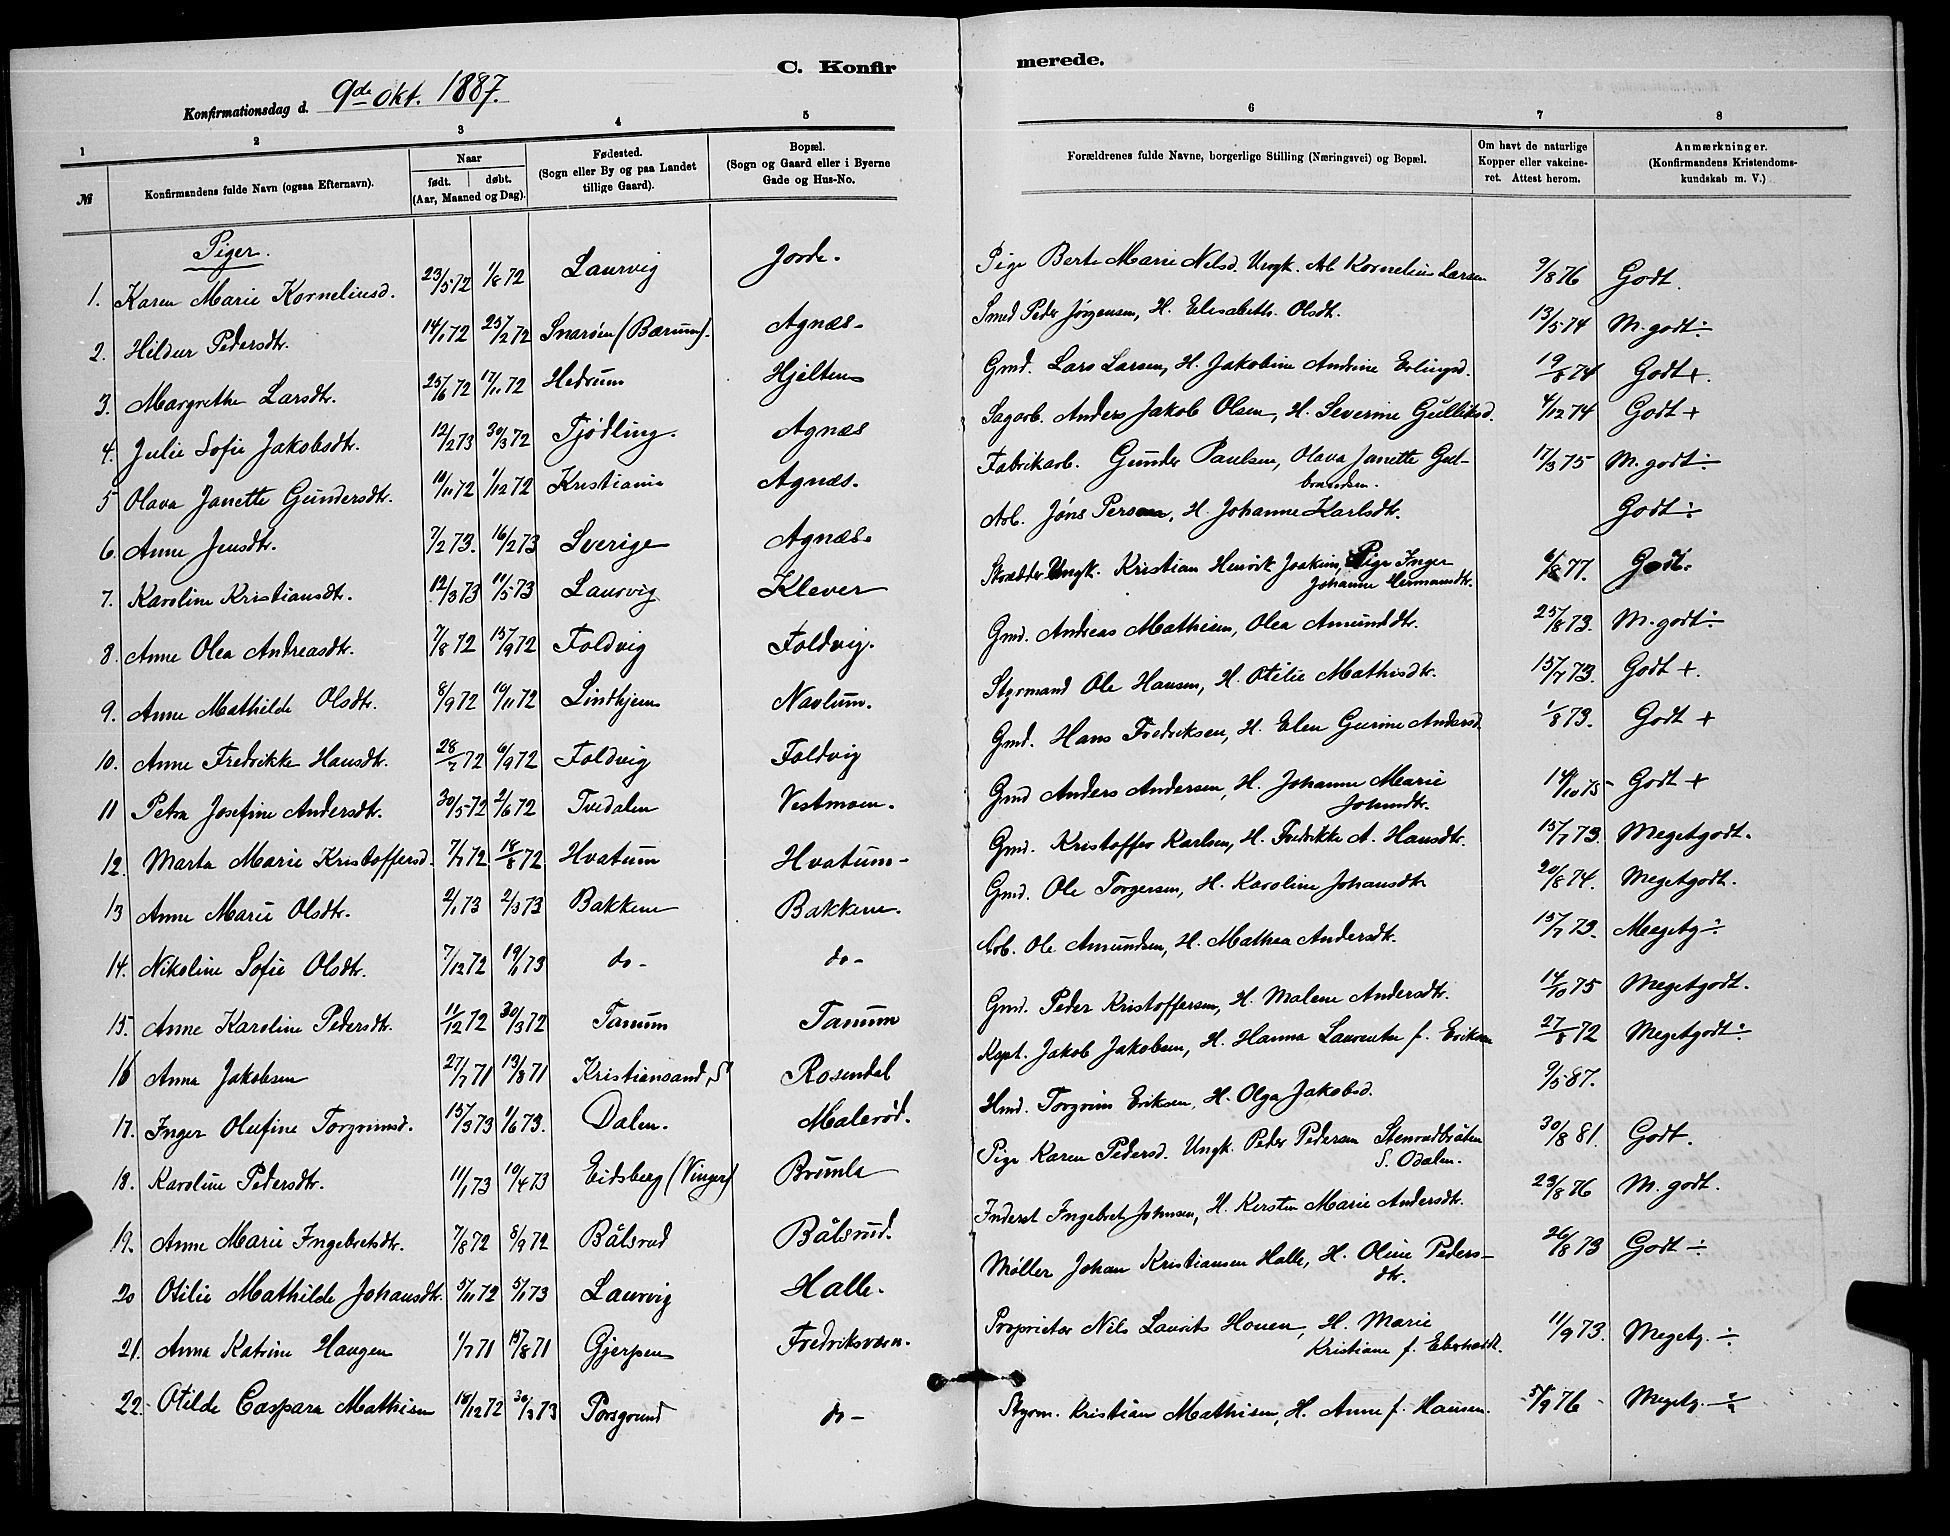 C. Konfirmerede.
Konfirmationsdag d. 9de Okt. 1887.
1 2 3 4 5 6 7 8
№ Konfirmandens fulde Navn (ogsaa Efternavn). Naar født. døbt. (Aar, Maaned og Dag). Fødested. (Sogn eller By og paa Landet tillige Gaard). Bopæl. (Sogn og Gaard eller i Byerne Gade og Hus-No. Forældrenes fulde Navne, borgerlige Stilling (Næringsvei) og Bopæl. Om havt de naturlige Kopper eller vakcineret. Attest herom. Anmærkninger. (Konfirmandens Kristendomskundskab m. V.)
Piger.
1. Karen Marie Korneliusd. 23/5 72 1/8 72 Laurvig Jorde. Pige Berte Marie Nilsd. Ungk. Arb Kornelius Larsen 9/8 76 Godt.
2. Hildur Pedersdtr. 14/1 72 25/2 72 Snarøen (Bærum). Agnæs. Smed Peder Jørgensen, H. Elisabeth Olsdt. 13/5 74 M. godt ÷
3. Margrethe Larsdtr. 25/6 72 17/11 72 Hedrum Hjelten Gmd. Lars Larsen, H. Jakobine Andrine Erlingsd. 19/8 74 Godt +.
4. Julie Sofie Jakobsdtr. 12/2 73 30/3 72 Tjødling. Agnæs Sagarb. Anders Jakob Olsen, H. Severine Gulliksd. 4/12 74 Godt +
5 Olava Janette Gundersdtr. 10/11 72 1/12 72 Kristiania Agnæs. Fabrikarb. Gunder Paulsen, Olava Janette Gudbrandsen. 17/3 75 M. godt ÷
6. Anne Jensdtr. 7/2 73. 16/2 73 Sverige Agnæs. Arb. Jøns Persson, H. Johanne Karlsdtr. Godt ÷
7. Karoline Kristiansdtr. 12/3 73 11/5 73 Laurvig Klever Skrædder Ungk. Kristian Henrik Joakim, Pige Inger Johanne Hermansdtr. 6/8 77. Godt.
8. Anne Olea Andreasdtr. 7/8 72 15/9 72 Foldvig Foldvig. Gmd. Andreas Mathisen, Olea Amunddtr. 25/8 73. M. godt ÷
9. Anne Mathilde Olsdtr. 8/9 72 10/11 72 Lindhjem Navlum. Styrmand Ole Hansen, H. Otilie Mathisdtr. 15/7 73. Godt +.
10. Anne Fredrikke Hansdtr. 28/7 72 6/9 72 Foldvig Foldvig Gmd. Hans Fredriksen, H. Elen Gurine Andersd. 1/8 73. Godt +
11 Petra Josefine Andersdtr. 30/5 72 2/6 72 Tvedalen Vestmoen. Gmd Anders Andersen, H. Johanne Marie Johnsdtr. 14/10 75 Godt +
12. Marta Marie Kristoffersd. 7/7 72 18/8 72 Hvatum Hvatum Gmd. Kristoffer Karlsen, H. Fredrikke A. Hansdtr. 15/7 73. Megetgodt.
13 Anne Marie Olsdtr. 2/1 73 2/3 73 Bakkene Bakkene. Gmd. Ole Torgersen, H. Karoline Johansdtr 20/8 74. Megetgodt.
14. Nikoline Sofie Olsdtr. 7/12 72 19/1 73 do- do- Arb. Ole Amundsen, H. Mathea Andersdtr. 15/7 73. Megetg ÷
15. Anne Karoline Pedersdtr. 11/12 72 30/3 72 Tanum Tanum Gmd. Peder Kristoffersen, H. Malene Andersdtr. 14/10 75 Megetgodt.
16 Anna Jakobsen 27/7 71 13/8 71 Kristiansand, S Rosendal Kapt. Jakob Jakobsen, H. Hanna Laurentse f. Eriksen 27/8 72 Megetgodt ÷
17. Inger Olufine Torgrimsd. 15/3 73 1/6 73. Dalen. Malerød. Hmd. Torgrim Eriksen, H. Olga Jakobsd. 9/5 87.
18. Karoline Pedersdtr. 11/1 73 10/4 73 Eidsberg (Vinger) Brømla Pige Karen Pedersd. Ungk. Peder Pedersen Stenrudbråten S. Odalen. 30/8 81. Godt.
19. Anne Marie Ingebretsdtr. 7/8 72 8/9 72 Bålsrud Bålsrud. Inderst Ingebret Johnsen, H. Kersten Marie Andersdtr. 23/8 76 M. godt.
20 Otilie Mathilde Johansdtr. 5/11 72 5/1 73 Laurvig Halle. Møller Johan Kristiansen Halle, H. Oline Pedersdtr. 26/8 73 Godt ÷
21. Anna Katrine Haugen 1/7 71 15/8 71 Gjerpen Fredriksværn. Proprietær Nils Laurits Houen, H. Marie Kristiane f. Eberhardt. 11/9 73. Megetg. ÷
22. Otilde Caspara Mathisen 18/12 72 30/3 73 Porsgrund do- Styrm. Kristian Mathisen, H. Anne f. Hansen. 5/9 76 Megetg. ÷